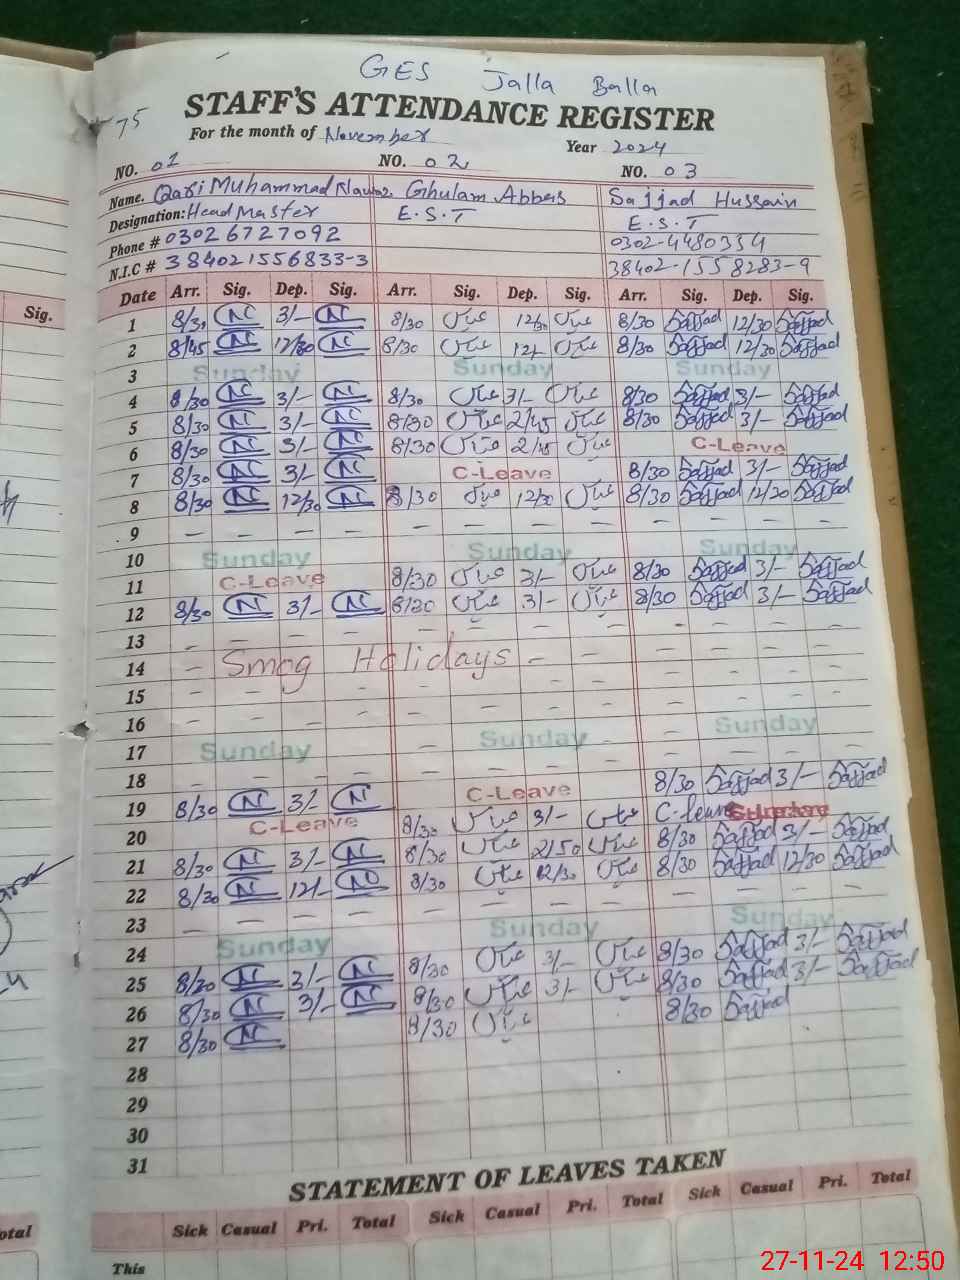 GES Jalla Balla
75
STAFF'S ATTENDANCE REGISTER
For the month of November Year 2024
NO. 01 NO. 02 NO. 03
Name. Qari Muhammad Nawaz Ghulam Abbas Sajjad Hussain
Designation: Head Master E.S.T E.S.T
Phone # 0302 6727092 0302-4480354
N.I.C # 384021556833-3 38402-1558283-9
Sig. Date Arr. Sig. Dep. Sig. Arr. Sig. Dep. Sig. Arr. Sig. Dep. Sig.
1 8/30 N 3/- N 8/30 عباس 12/30 عباس 8/30 Sajjad 12/30 Sajjad
2 8/45 N 12/30 N 8/30 عباس 12/- عباس 8/30 Sajjad 12/30 Sajjad
3 Sunday Sunday Sunday
4 8/30 N 3/- N 8/30 عباس 3/- عباس 8/30 Sajjad 3/- Sajjad
5 8/30 N 3/- N 8/30 عباس 2/45 عباس 8/30 Sajjad 3/- Sajjad
6 8/30 N 3/- N 8/30 عباس 2/45 عباس C-Leave
7 8/30 N 3/- N C-Leave 8/30 Sajjad 3/- Sajjad
8 8/30 N 12/30 N 8/30 عباس 12/30 عباس 8/30 Sajjad 12/30 Sajjad
9 - - - - - - - - - - - -
10 Sunday Sunday Sunday
11 C-Leave 8/30 عباس 3/- عباس 8/30 Sajjad 3/- Sajjad
12 8/30 N 3/- N 8/30 عباس 3/- عباس 8/30 Sajjad 3/- Sajjad
13 - - - - - - - - - - - -
14 - Smog Holidays - - - - - -
15 - - - - - - - - - - - -
16 - - - - - - - - - - - -
17 Sunday Sunday Sunday
18 - - - - - - - - - - - -
19 8/30 N 3/- N C-Leave 8/30 Sajjad 3/- Sajjad
20 C-Leave 8/30 عباس 3/- عباس C-leave
21 8/30 N 3/- N 8/30 عباس 2/50 عباس 8/30 Sajjad 3/- Sajjad
22 8/30 N 12/- N 8/30 عباس 12/30 عباس 8/30 Sajjad 12/30 Sajjad
23 - - - - - - - - - - - -
24 Sunday Sunday Sunday
25 8/30 N 3/- N 8/30 عباس 3/- عباس 8/30 Sajjad 3/- Sajjad
26 8/30 N 3/- N 8/30 عباس 3/- عباس 8/30 Sajjad 3/- Sajjad
27 8/30 N 8/30 عباس 8/30 Sajjad
28
29
30
31
STATEMENT OF LEAVES TAKEN
otal Sick Casual Pri. Total Sick Casual Pri. Total Sick Casual Pri. Total
This
27-11-24 12:50